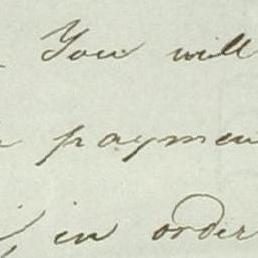 You will
paymen
, in order